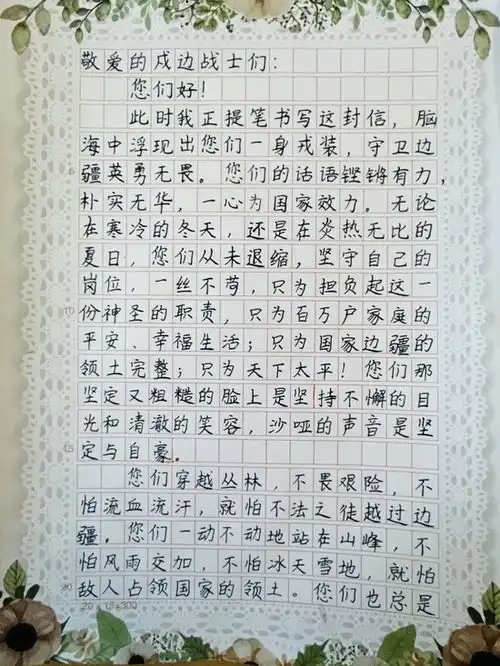 敬爱的戍边战士们：
您们好！
此时我正提笔书写这封信，脑
海中浮现出您们一身戎装，守卫边
疆英勇无畏。您们的话语铿锵有力，
朴实无华，一心为国家效力。无论
在寒冷的冬天，还是在炎热无比的
夏日，您们从未退缩，坚守自己的
岗位，一丝不苟，只为担负起这一
份神圣的职责，只为百万户家庭的
平安、幸福生活；只为国家边疆的
领土完整；只为天下太平！您们那
坚定又粗糙的脸上是坚持不懈的目
光和清澈的笑容，沙哑的声音是坚
定与自豪。
您们穿越丛林，不畏艰险，不
怕流血流汗，就怕不法之徒越过边
疆。您们一动不动地站在山峰，不
怕风雨交加，不怕冰天雪地，就怕
敌人占领国家的领土。您们也总是
20×15=300